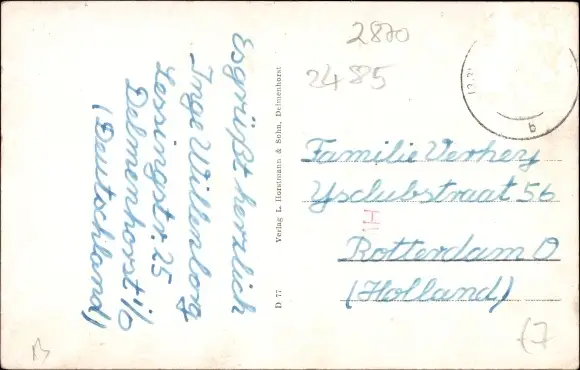 Es grüßt herzlich
Inge Willenborg
Lessingstr. 25
Delmenhorst i/o
(Deutschland)
Verlag L. Horstmann & Sohn, Delmenhorst
D 77
2870
2485
b
Familie Verhey
Ysclubstraat 56
H
Rotterdam O
(Holland)